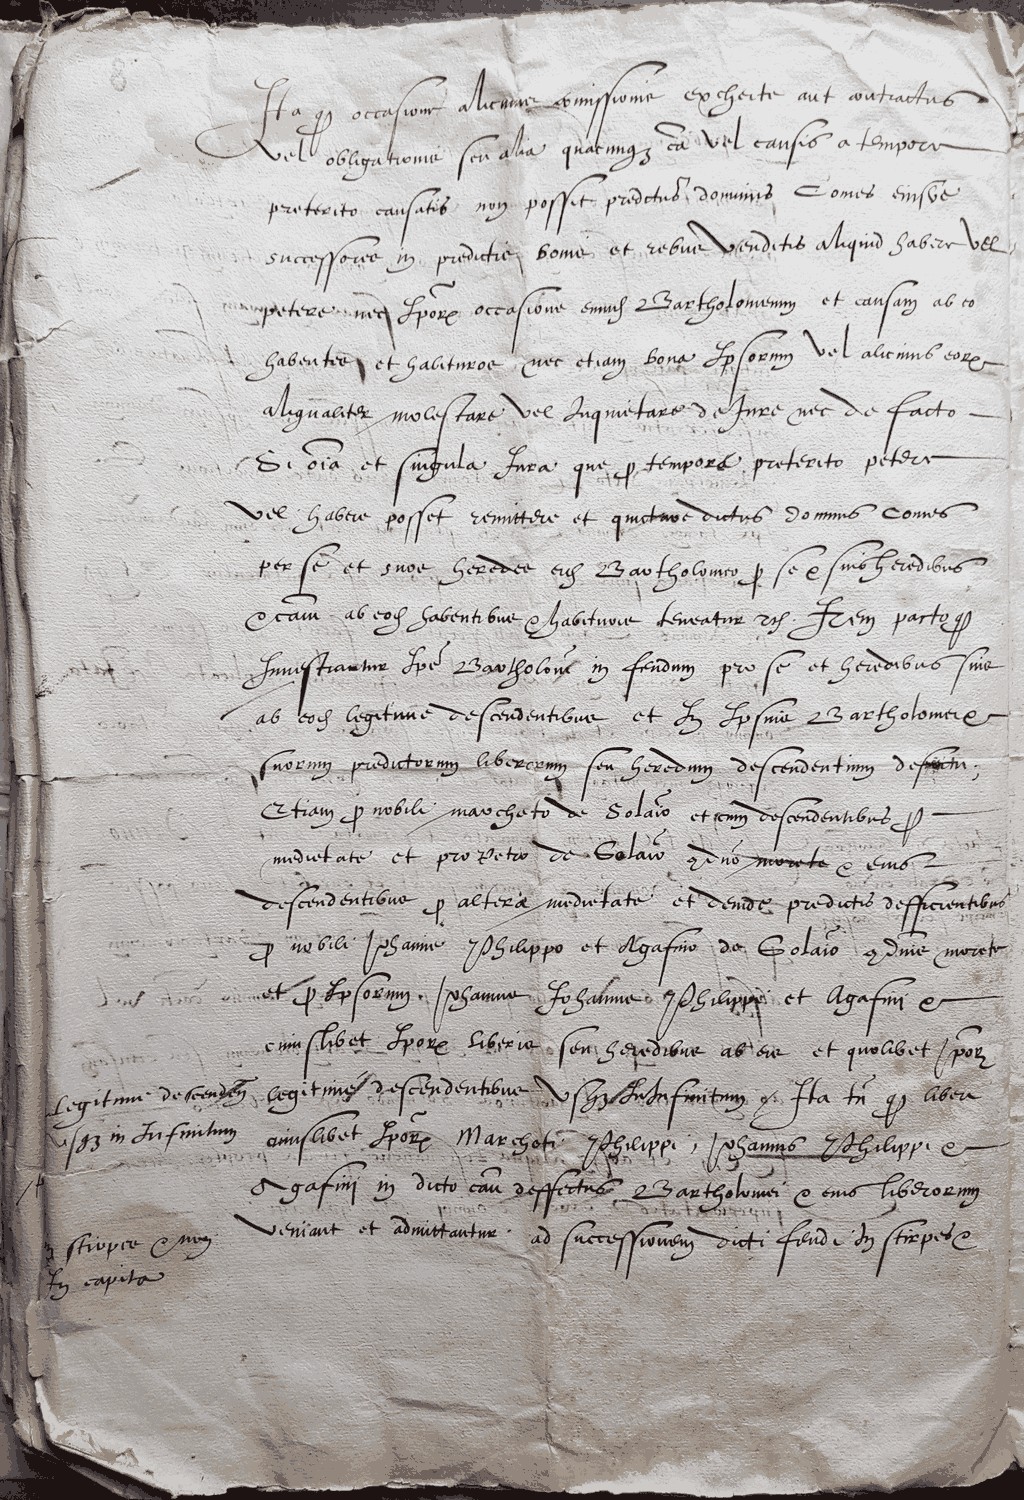 Ita q occasione alicuius comissionis excheite aut contractus
vel obligationis seu alia quacumq ca vel causis a tempore
preterito causatis non posset predctus dominus Comes eiusve
successores in predictis bonis et rebus venditis aliquid habere vel
petere nec Ipor occasione eumd Bartholomeum et causam ab eo
habentes et habituros nec etiam bona Ipsorum vel alicuius eor
aliqualiter molestare vel Inquietare de Jure nec de facto
Si oia et singula Jura que p tempore preterito petere
vel habere posset remittere et quictare dictus dominus Comes
per se et suos heredes eid Bartholomeo p se & suis heredibus
& cam ab eod habentibus & habituris teneatur Item pacto q
Investiantur Ipse Bartholome in feudum pro se et heredibus suis
ab eod legitime descendentibus et In Ipsius Bartholomei &
suorum predictorum liberorum seu heredum descendentium defectu
Etiam p nobili marcheto de Solario et eius descendentibus p
medietate et pro Petro de Solario qd morete & eius
descendentibus p altera medietate et deinde predictis defficientibus
p nobili Johanne Philippo et Agafino de Solario qdm morete
et p Ipsorum Johannis Johannis Philippi et Agafini &
cuiuslibet Ipor liberis seu heredibus ab eis et quolibet Ipor
legitime descendentibus usq In Infinitum Ita tn q liberi
legitime descenden
usq in Infinitum
cuiuslibet Ipor Marcheti Philippi, Johannis Philippi &
Agafini in dicto casu deffectus Bartholomei & eius liberorum
veniant et admittantur ad successionem dicti feudi In stirpes &
stirpes & non
In capita